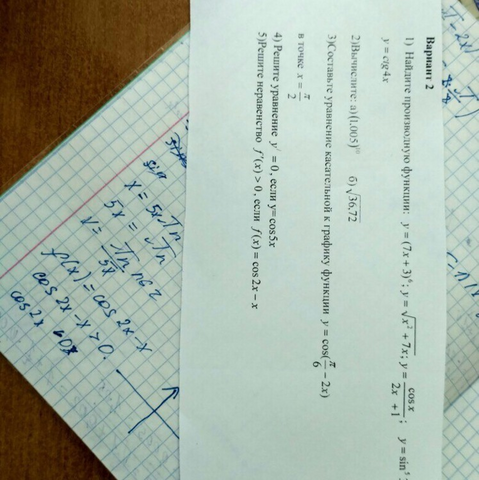 Вариант 2
1) Найдите производную функции: y = (7x + 3)⁶; y = √(x² + 7x); y = cos x / (2x + 1); y = sin⁵
y = ctg 4x
2)Вычислите: а)(1,005) б) √36,72
3)Составьте уравнение касательной к графику функции y = cos(π/6 − 2x)
в точке x = π/2
4) Решите уравнение y′ = 0, если y= cos 5x
5)Решите неравенство f′(x) > 0, если f(x) = cos 2x − x
sin
x = 5x πn
5x = πn
x = πn/5x n∈Z
f(x) = cos 2x − x
cos 2x − x > 0.
cos 2x